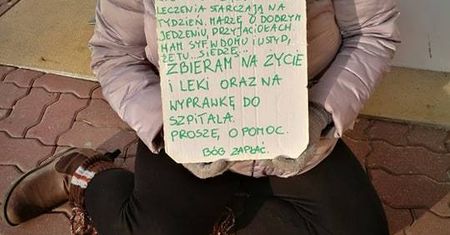 LECZENIA STARCZAJĄ NA
TYDZIEŃ. MARZĘ O DOBRYM
JEDZENIU, PRZYJACIOŁACH
HAM SYF W DOMU I USTYD,
ŻE TU... SIEDZĘ...
ZBIERAM NA ŻYCIE
I LEKI ORAZ NA
WYPRAWKĘ DO
SZPITALA.
PROSZĘ, O POMOC.
BÓG ZAPŁAĆ.